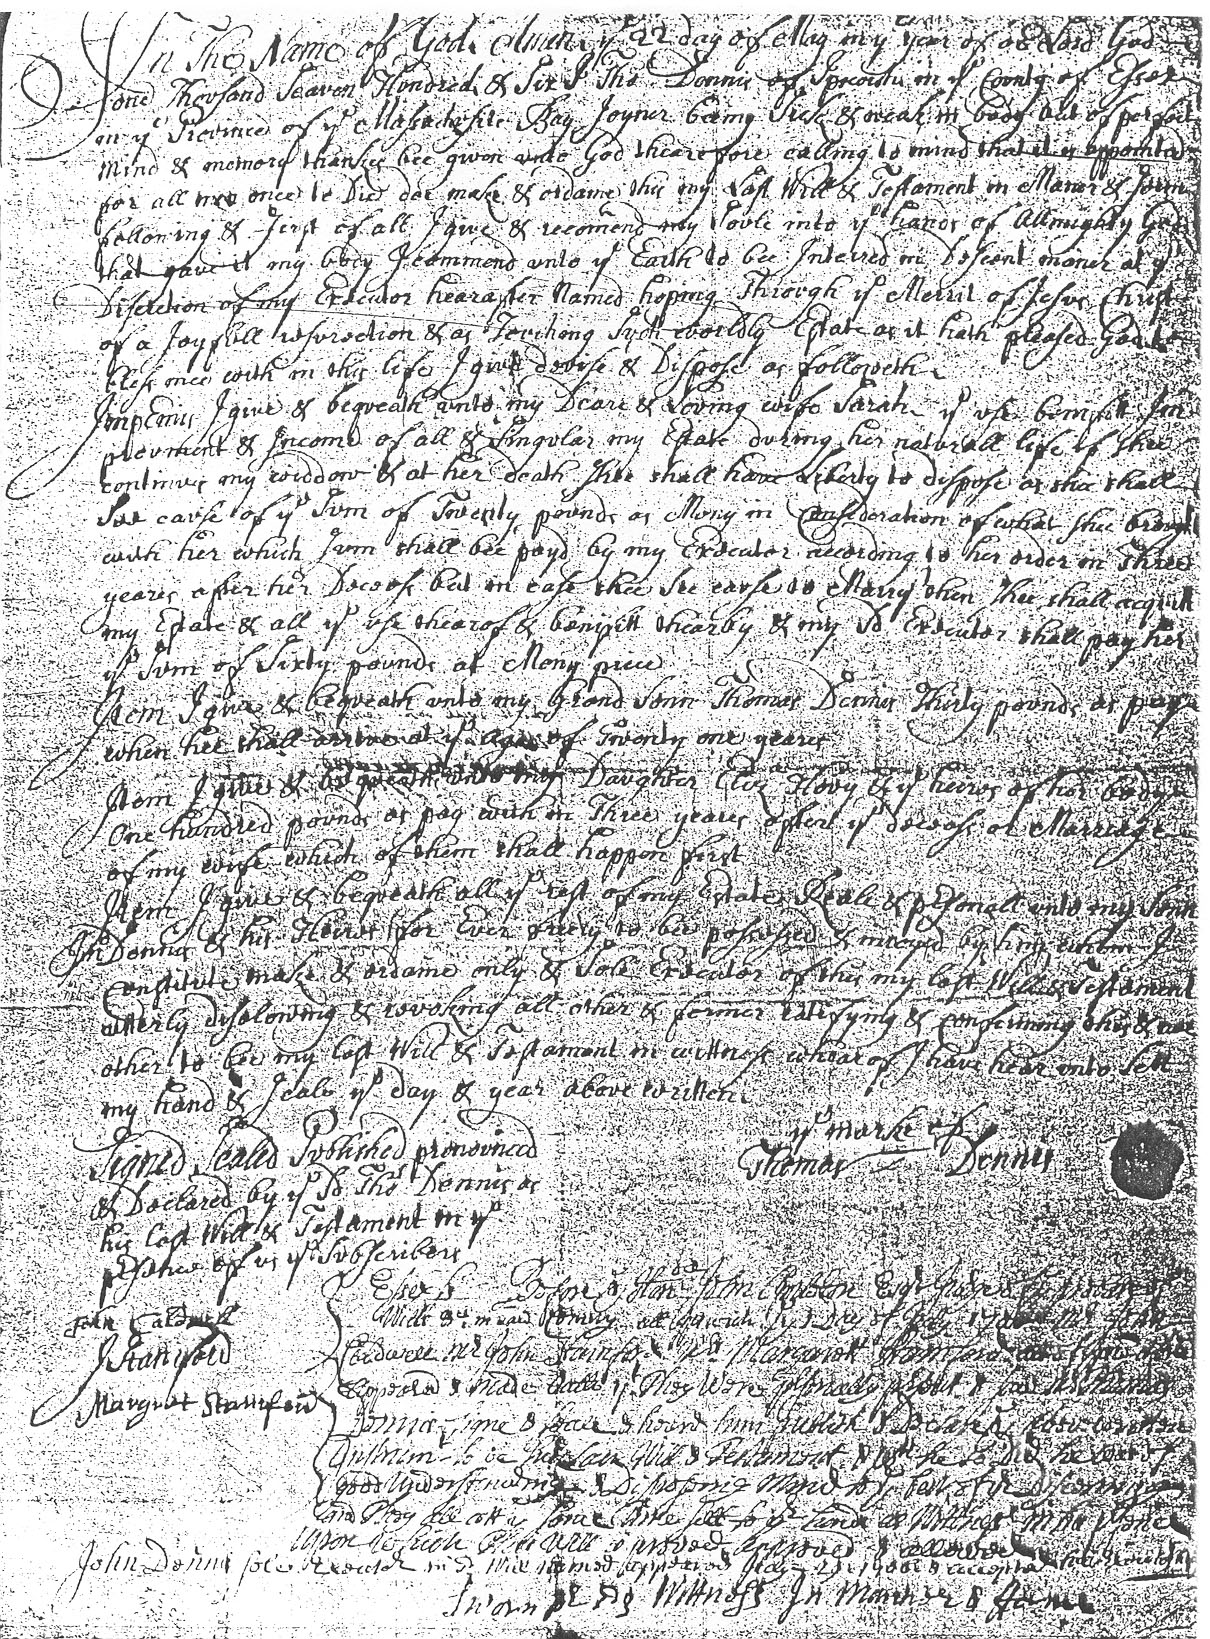 In The Name of God Amen ye 22 day of May in ye year of our Lord God
one Thousand Seaven Hundred & Six I Tho: Dennis of Ipswich in ye County of Essex
in ye Province of ye Massachusits Bay Joyner being Sick & weak in body but of perfect
mind & memory thankes bee given unto God thearefore calling to mind that it is appointed
for all men once to Die doe make & ordaine this my Last Will & Testament in Maner & form
following & First of all I give & recomend my Soule into ye hands of Allmighty God
that gave it my body I commend unto ye Earth to bee Interred in Descent maner at ye
Discretion of my Executor hearafter Named hoping Through ye Merrit of Jesus Christ
of a Joyfull resurection & as Touching Such worldly Estate as it hath pleased God to
bless mee with in this life I give devise & Dispose as followeth
Impemis I give & bequeath unto my Deare & Loving wife Sarah ye use benifitt Im
provment & Income of all & Singular my Estate during her naturall life if shee
continues my widdow & at her death Shee shall have Liberty to dispose as shee shall
See cause of ye Sum of Twenty pounds as Mony in Consideration of what shee brought
with her which Sum shall bee payd by my Executor according to her order in Three
yeares after her Decease but in case shee See cause to Marry then Shee shall acquitt
my Estate & all ye use thearof & benifitt thearby & my Sd Executor shall pay her
ye Sum of Sixty pounds at Mony price
Item I give & bequeath unto my Grand Sonn Thomas Dennis Thirty pounds as pay
when hee shall arrive at ye Age of Twenty one yeares
Item I give & bequeath unto my Daughter Eliz Hovy & ye heires of her body
One hundred pounds as pay with in Three yeares after ye decease or Marriage
of my wife which of them shall happen first
Item I give & bequeath all ye rest of my Estate Reale & pesonall unto my Sonn
Jno Dennis & his Heires for Ever freely to bee possessed & injoyed by him whom I
Constitute make & ordaine only & Sole Executor of this my last Will & Testament
utterly disalowing & revoking all other & former ratifying & confirming this & noe
other to bee my last Will & Testament in wittness whearof I have hear unto Sett
my hand & Seale ye day & year above written
ye marke of
Thomas Dennis
Signed Sealed Published pronounced
& Declared by ye Sd Tho: Dennis as
his last Will & Testament in ye
pesence of us ye Subscribers
John Caldwell
J Stanford
Margret Stanford
Essex Before ye Honble John Appleton Esqr Judge of ye Probate of
Wills &c in said County at Ipswich July Day of Mr John
Caldwell Mr John Stainford & Margarett Stainford
Appeared & made Oath yt They Were psonally psent & saw Thomas
Dennis signe & seale & heard him publish & Declare ye above written
Instrument to be his Last Will & Testament & yt when he so Did he was of
good Understanding & Disposeing Mind to ye best of their Discerning
and They all att ye same time sett to yr hands as Wittnesses in his psence
Upon which This Will is proved Approved & allowed
John Dennis sole Executor in sd Will named appeared
Sworn Wittness In Manner & forme